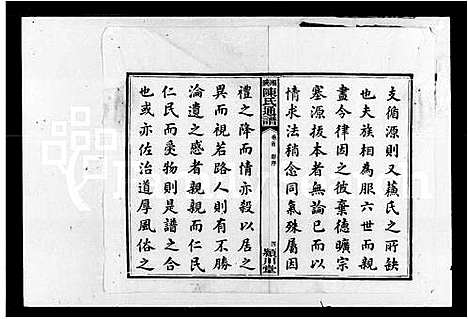 支循源則又蘇氏之所缺
也夫族相為服六世而親
盡今律因之彼棄德曠宗
塞源拔本者無論已而以
情求法稍念同氣殊屬因
陳氏通譜
卷首
四
潁川堂
禮之降而情亦殺以居之
異而視若路人則有不勝
淪遺之感者親親而仁民
仁民而愛物則是譜之合
也或亦佐治道厚風俗之